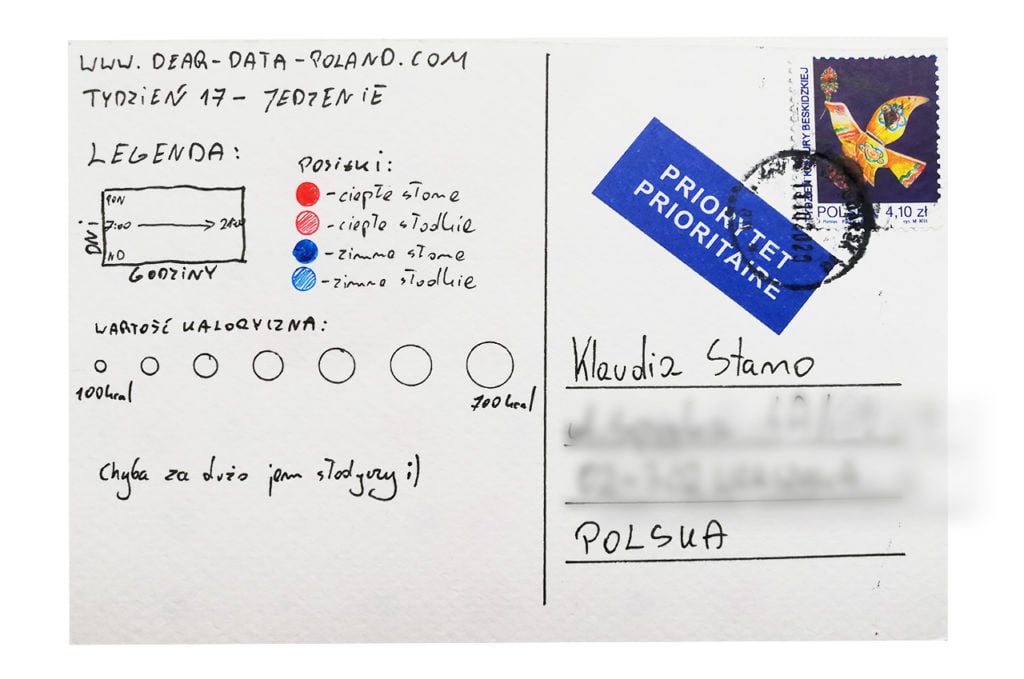 WWW.DEAR-DATA-POLAND.COM
TYDZIEŃ 17 - JEDZENIE
LEGENDA:
PON
7:00
DNi
ND
GODZINY
POSIŁKI:
- ciepłe słone
- ciepłe słodkie
- zimne słone
- zimne słodkie
WARTOŚĆ KALORYCZNA:
100kcal
700kcal
Chyba za dużo jem słodyczy ;)
PRIORYTET
PRIORITAIRE
TYDZIEŃ KULTURY BESKIDZKIEJ
POLSKA 4,10 zł
Klaudia Stamo
POLSKA